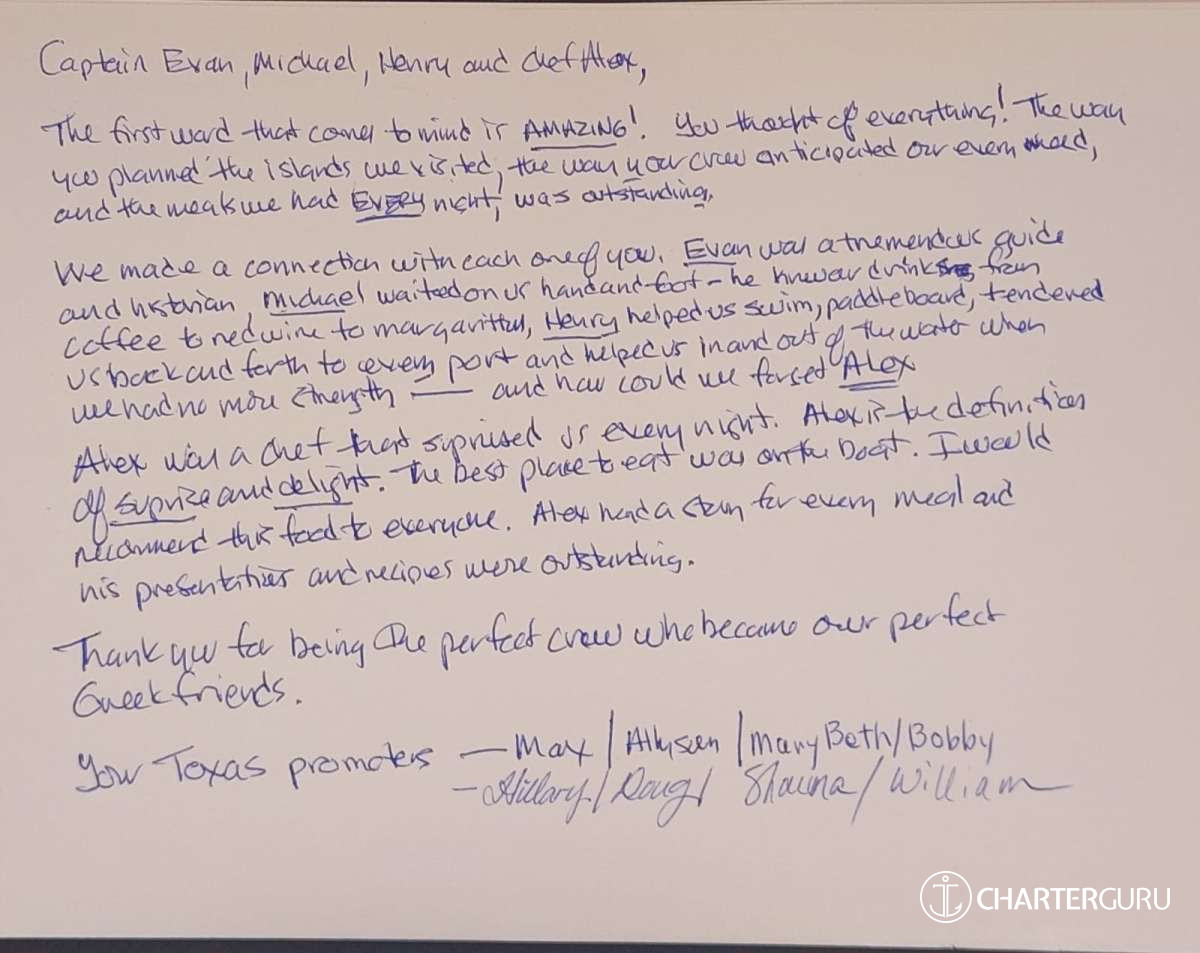 Captain Evan, Michael, Henry and Chef Alex,
The first word that comes to mind is AMAZING! You thought of everything! The way
you planned the islands we visited, the way your crew anticipated our every need,
and the meals we had EVERY night, was outstanding.
We made a connection with each one of you. Evan was a tremendous guide
and historian, Michael waited on us hand and foot - he knew our drinks from
coffee to red wine to margarittas, Henry helped us swim, paddleboard, tendered
us back and forth to every port and helped us in and out of the water when
we had no more strength — and how could we forget Alex
Alex was a chef that suprised us every night. Alex is the definition
of suprize and delight. The best place to eat was on the boat. I would
recommend this food to everyone. Alex had a story for every meal and
his presentations and recipes were outstanding.
Thank you for being the perfect crew who became our perfect
Greek friends.
Your Texas promoters — Max / Allyson / Mary Beth / Bobby
- Hillary / Doug / Shauna / William
CHARTERGURU